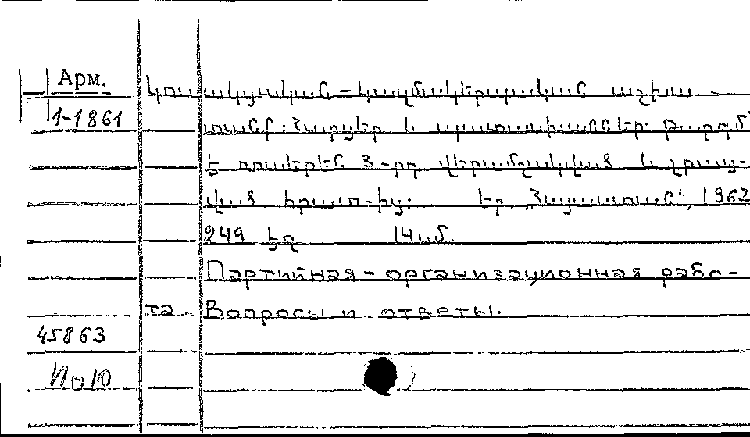 Арм.
1-1861
Կուսակցական-կազմակերպչական աշխա-
տանք: Հարցեր և պատասխաններ: Թարգմ.
է ռուսերեն 3-րդ վերամշակված և լրաց-
ված հրատ-ից: Եր., Հայպետհրատ, 1962
249 էջ 14սմ.
Партийная-организационная рабо-
та. Вопросы и ответы.
45863